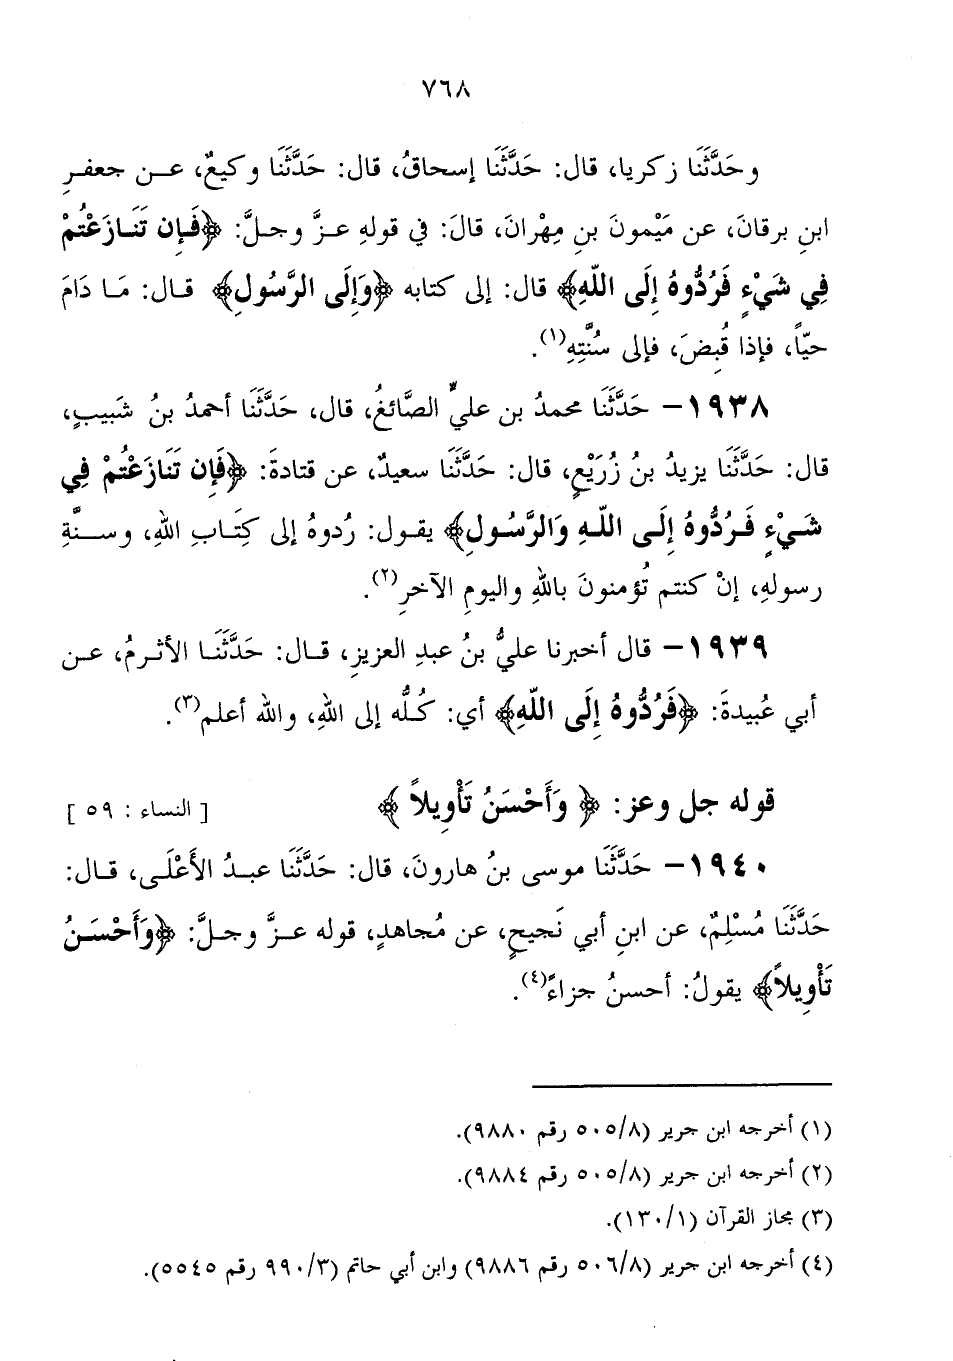 ٧٦٨
وحَدَّثَنَا زكريا، قال: حَدَّثَنَا إسحاقُ، قال: حَدَّثَنَا وكيعٌ، عـن جعفرِ
ابنِ برقانَ، عن مَيْمونَ بنِ مِهْرانَ، قالَ: في قولهِ عـزَّ وجـلَّ: ﴿فَـإِن تَنَـازَعْتُمْ
فِي شَيْءٍ فَرُدُّوهُ إِلَى اللّهِ﴾ قال: إلى كتابه ﴿وَإِلَى الرَّسُولِ﴾ قـال: مَـا دَامَ
حيّاً، فإذا قُبِضَ، فإلى سُنَّتِهِ(١).
١٩٣٨- حَدَّثَنَا محمدُ بن عليٍّ الصَّائغُ، قال، حَدَّثَنَا أحمدُ بنُ شَبيبٍ،
قال: حَدَّثَنَا يزيدُ بنُ زُرَيْعٍ، قال: حَدَّثَنَا سعيدٌ، عن قتادةَ: ﴿فَإِن تَنَازَعْتُمْ فِي
شَـيْءٍ فَـرُدُّوهُ إِلَـى اللّـهِ وَالرَّسُـولِ﴾ يقـول: رُدوهُ إلى كِتَـابِ اللهِ، وسـنَّةِ
رسولهِ، إنْ كنتم تُؤمنونَ باللهِ واليومِ الآخرِ(٢).
١٩٣٩- قال أخبرنا عليُّ بنُ عبدِ العزيزِ، قـال: حَدَّثَنَـا الأثـرمُ، عـن
أبي عُبيدةَ: ﴿فَرُدُّوهُ إِلَى اللّهِ﴾ أي: كُـلُّه إلى اللهِ، والله أعلم(٣).
قوله جل وعز: ﴿ وَأَحْسَنُ تَأْوِيلاً ﴾ [ النساء : ٥٩ ]
١٩٤٠- حَدَّثَنَا موسى بنُ هارونَ، قال: حَدَّثَنَا عبـدُ الأَعْلَـى، قـال:
حَدَّثَنَا مُسْلِمٌ، عن ابنِ أبي نَجيحٍ، عن مُجاهدٍ، قوله عـزَّ وجـلَّ: ﴿وَأَحْسَـنُ
تَأْوِيلاً﴾ يقولُ: أحسنُ جزاءً(٤).
(١) أخرجه ابن جرير (٥٠٥/٨ رقم ٩٨٨٠).
(٢) أخرجه ابن جرير (٥٠٥/٨ رقم ٩٨٨٤).
(٣) مجاز القرآن (١٣٠/١).
(٤) أخرجه ابن جرير (٥٠٦/٨ رقم ٩٨٨٦) وابن أبي حاتم (٩٩٠/٣ رقم ٥٥٤٥).